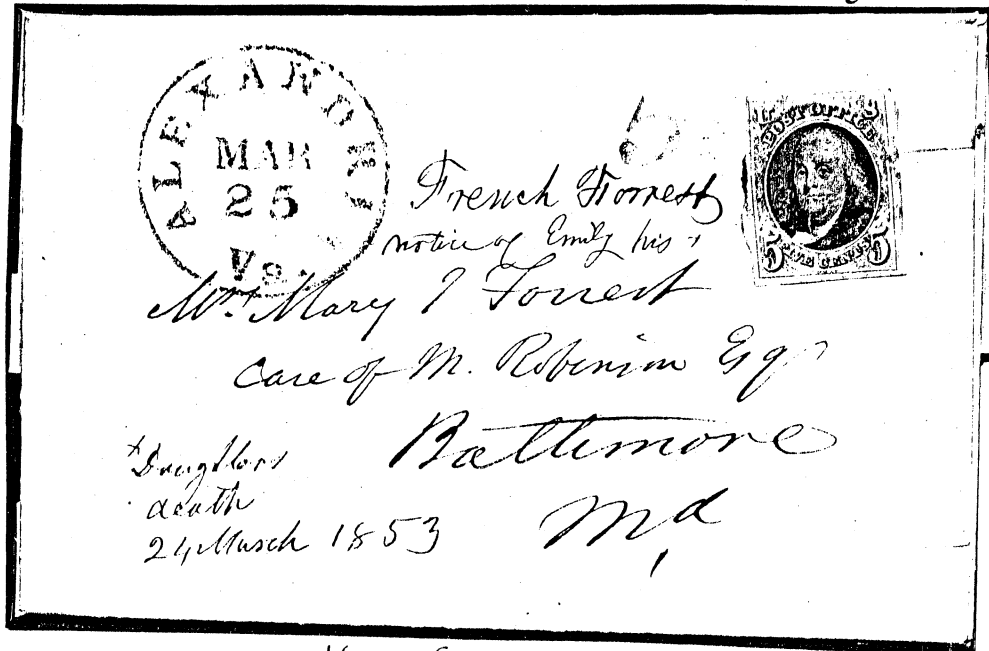 ALEXANDRIA
MAR
25
Va.
5
POST OFFICE
5 FIVE CENTS 5
French Forrest
notice of Emily his +
Mrs. Mary T Forrest
Care of M. Robinson Esqr
Baltimore
Md
+ Daughters
death
24 March 1853